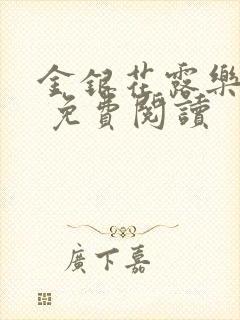 金銀花露樂
免費閱讀
廣下嘉